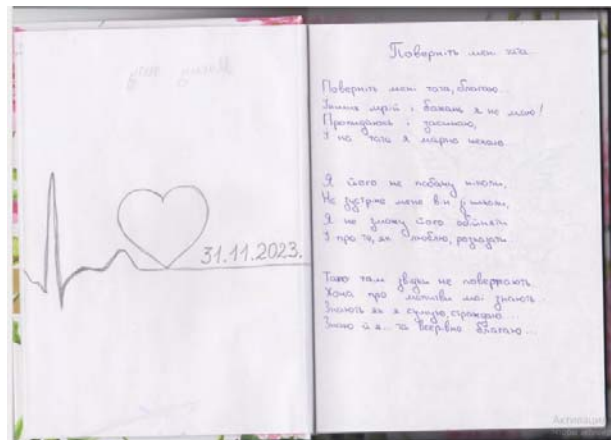 31.11.2023.
Поверніть мені тата...
Поверніть мені тата, благаю...
Інших мрій і бажань я не маю!
Прокидаюсь і засинаю,
І на тата я марно чекаю
Я його не побачу ніколи,
Не зустріне мене він зі школи,
Я не зможу його обійняти
І про те, як люблю, розказати
Тато там звідки не повертають...
Хоча про молитви мої знають...
Знають як я сумую, страждаю...
Знаю й я... та все рівно благаю...
Активация